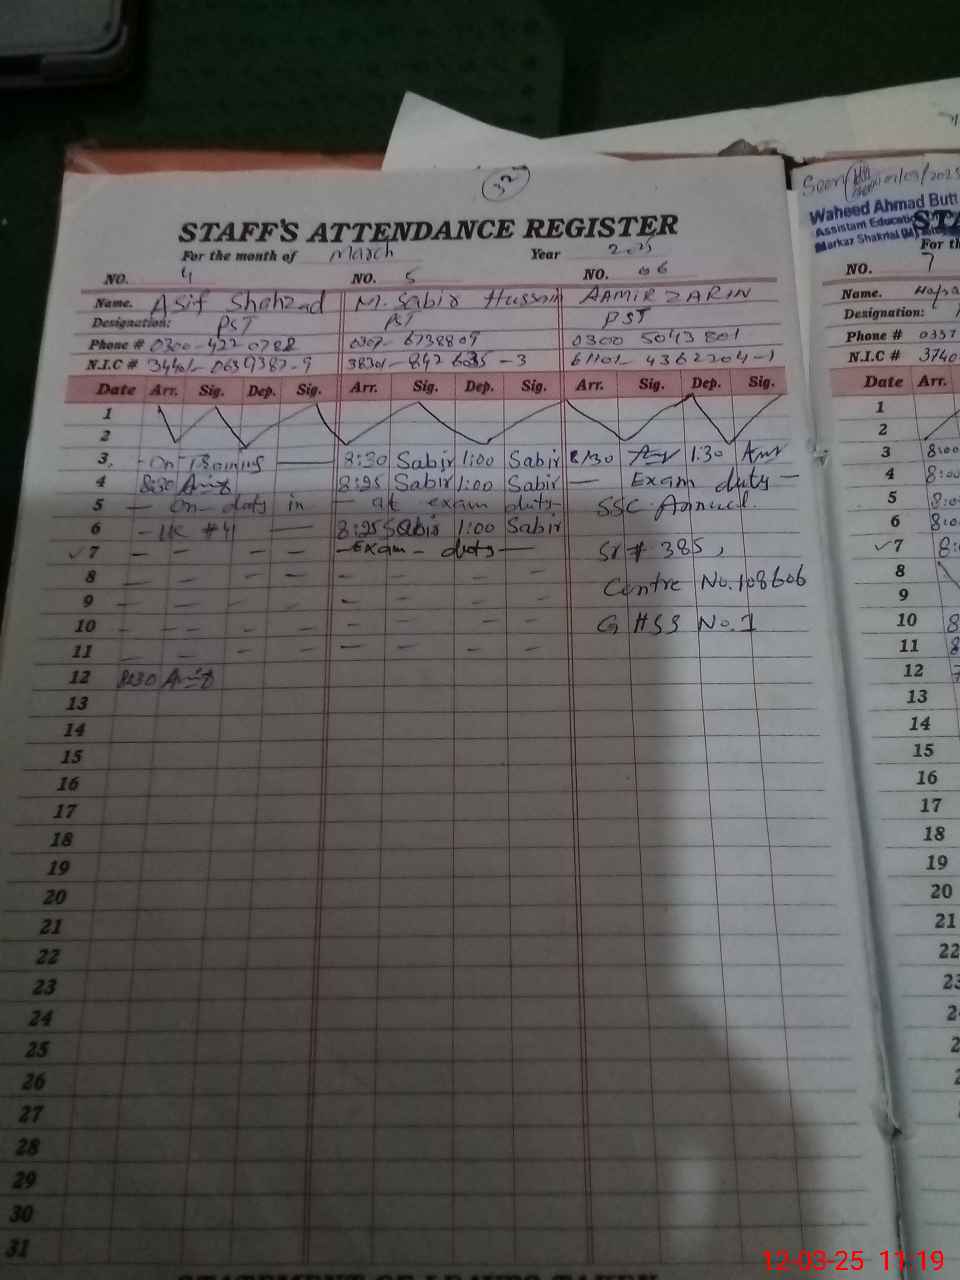 324
STAFF'S ATTENDANCE REGISTER
For the month of March Year 2025
NO. 4 NO. 5 NO. 06
Name. Asif Shahzad M. Sabir Hussain AAMIR ZARIN
Designation: PST PST PST
Phone # 0300-422 0788 0307-6738809 0300 5043801
N.I.C # 38301-842 -3 61101-4362204-1
Date Arr. Sig. Dep. Sig. Arr. Sig. Dep. Sig. Arr. Sig. Dep. Sig.
1
2
3 - On Training 8:30 Sabir 1:00 Sabir 8:30 Amr 1:30 Amr
4 8:30 Asif 8:25 Sabir 1:00 Sabir - Exam duty -
5 - On duty in - at exam duty - SSC Annual.
6 8:25 Sabir 1:00 Sabir
✓7 - - - - - Exam - duty - Sr # 385,
8 - - - - - - - - Centre No. 108606
9 - - - - - - - -
10 - - - - - - - - G HSS No. 1
11 - - - - - - - -
12 8:30 Asif
13
14
15
16
17
18
19
20
21
22
23
24
25
26
27
28
29
30
31
Seen 07/03/2025
Waheed Ahmad Butt
Assistant Educatio
Markaz Shakrial (M)
STA
For th
NO. 7
Name. Hafsa
Designation:
Phone # 0337
N.I.C # 3740
Date Arr.
1
2
3 8:00
4 8:00
5 8:0
6 8:0
✓7 8:
8
9
10 8
11 8
12 7
13
14
15
16
17
18
19
20
21
22
23
2
2
2
STATEMENT OF LEAVES TAKEN
12-03-25 11:19